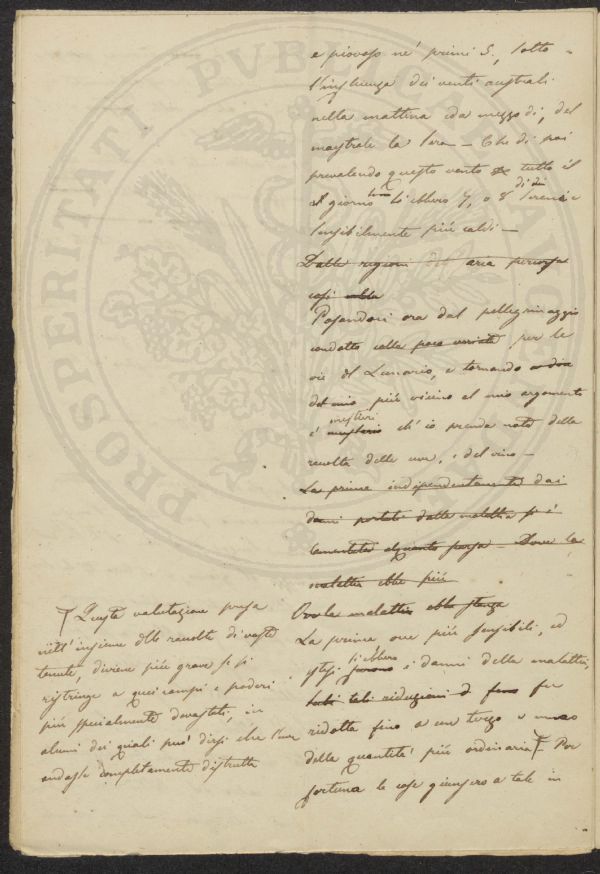 e piovoso ne' primi 5, sotto
l'influenza dei venti australi
nella mattina e da mezzo dì, del
maestrale la sera — Che di poi
prevalendo questo vento tutto il
giorno si ebbero 7, o 8 dì di sereni e
sensibilmente più caldi —
Dalle regioni dell' aria percorse
così
Passandoci ora dal pellegrinaggio
condotto colla poca varietà per le
vie del Lunario, e tornando
del mio più vicino al mio argomento
è mestieri ch' io prenda nota della
raccolta delle uve, e del vino —
La prima indipendentemente dai
danni portati dalla malattia si è
lamentata alquanto scarsa — Dove la
malattia ebbe più
Ove la malattia ebbe stanza
La prima ove più sensibili, ed
estesi si ebbero i danni della malattia,
tali riduzioni fu
ridotta fino a un terzo o meno
della quantità più ordinaria — Per
fortuna le cose giunsero a tale in
Questa valutazione presa
nell' insieme delle raccolte di vaste
tenute, diviene più grave se si
ristringe a quei campi e poderi
più specialmente devastati, in
alcuni dei quali può dirsi che l'uva
andasse completamente distrutta
PROSPERITATI PUBLICAE AUGENDAE